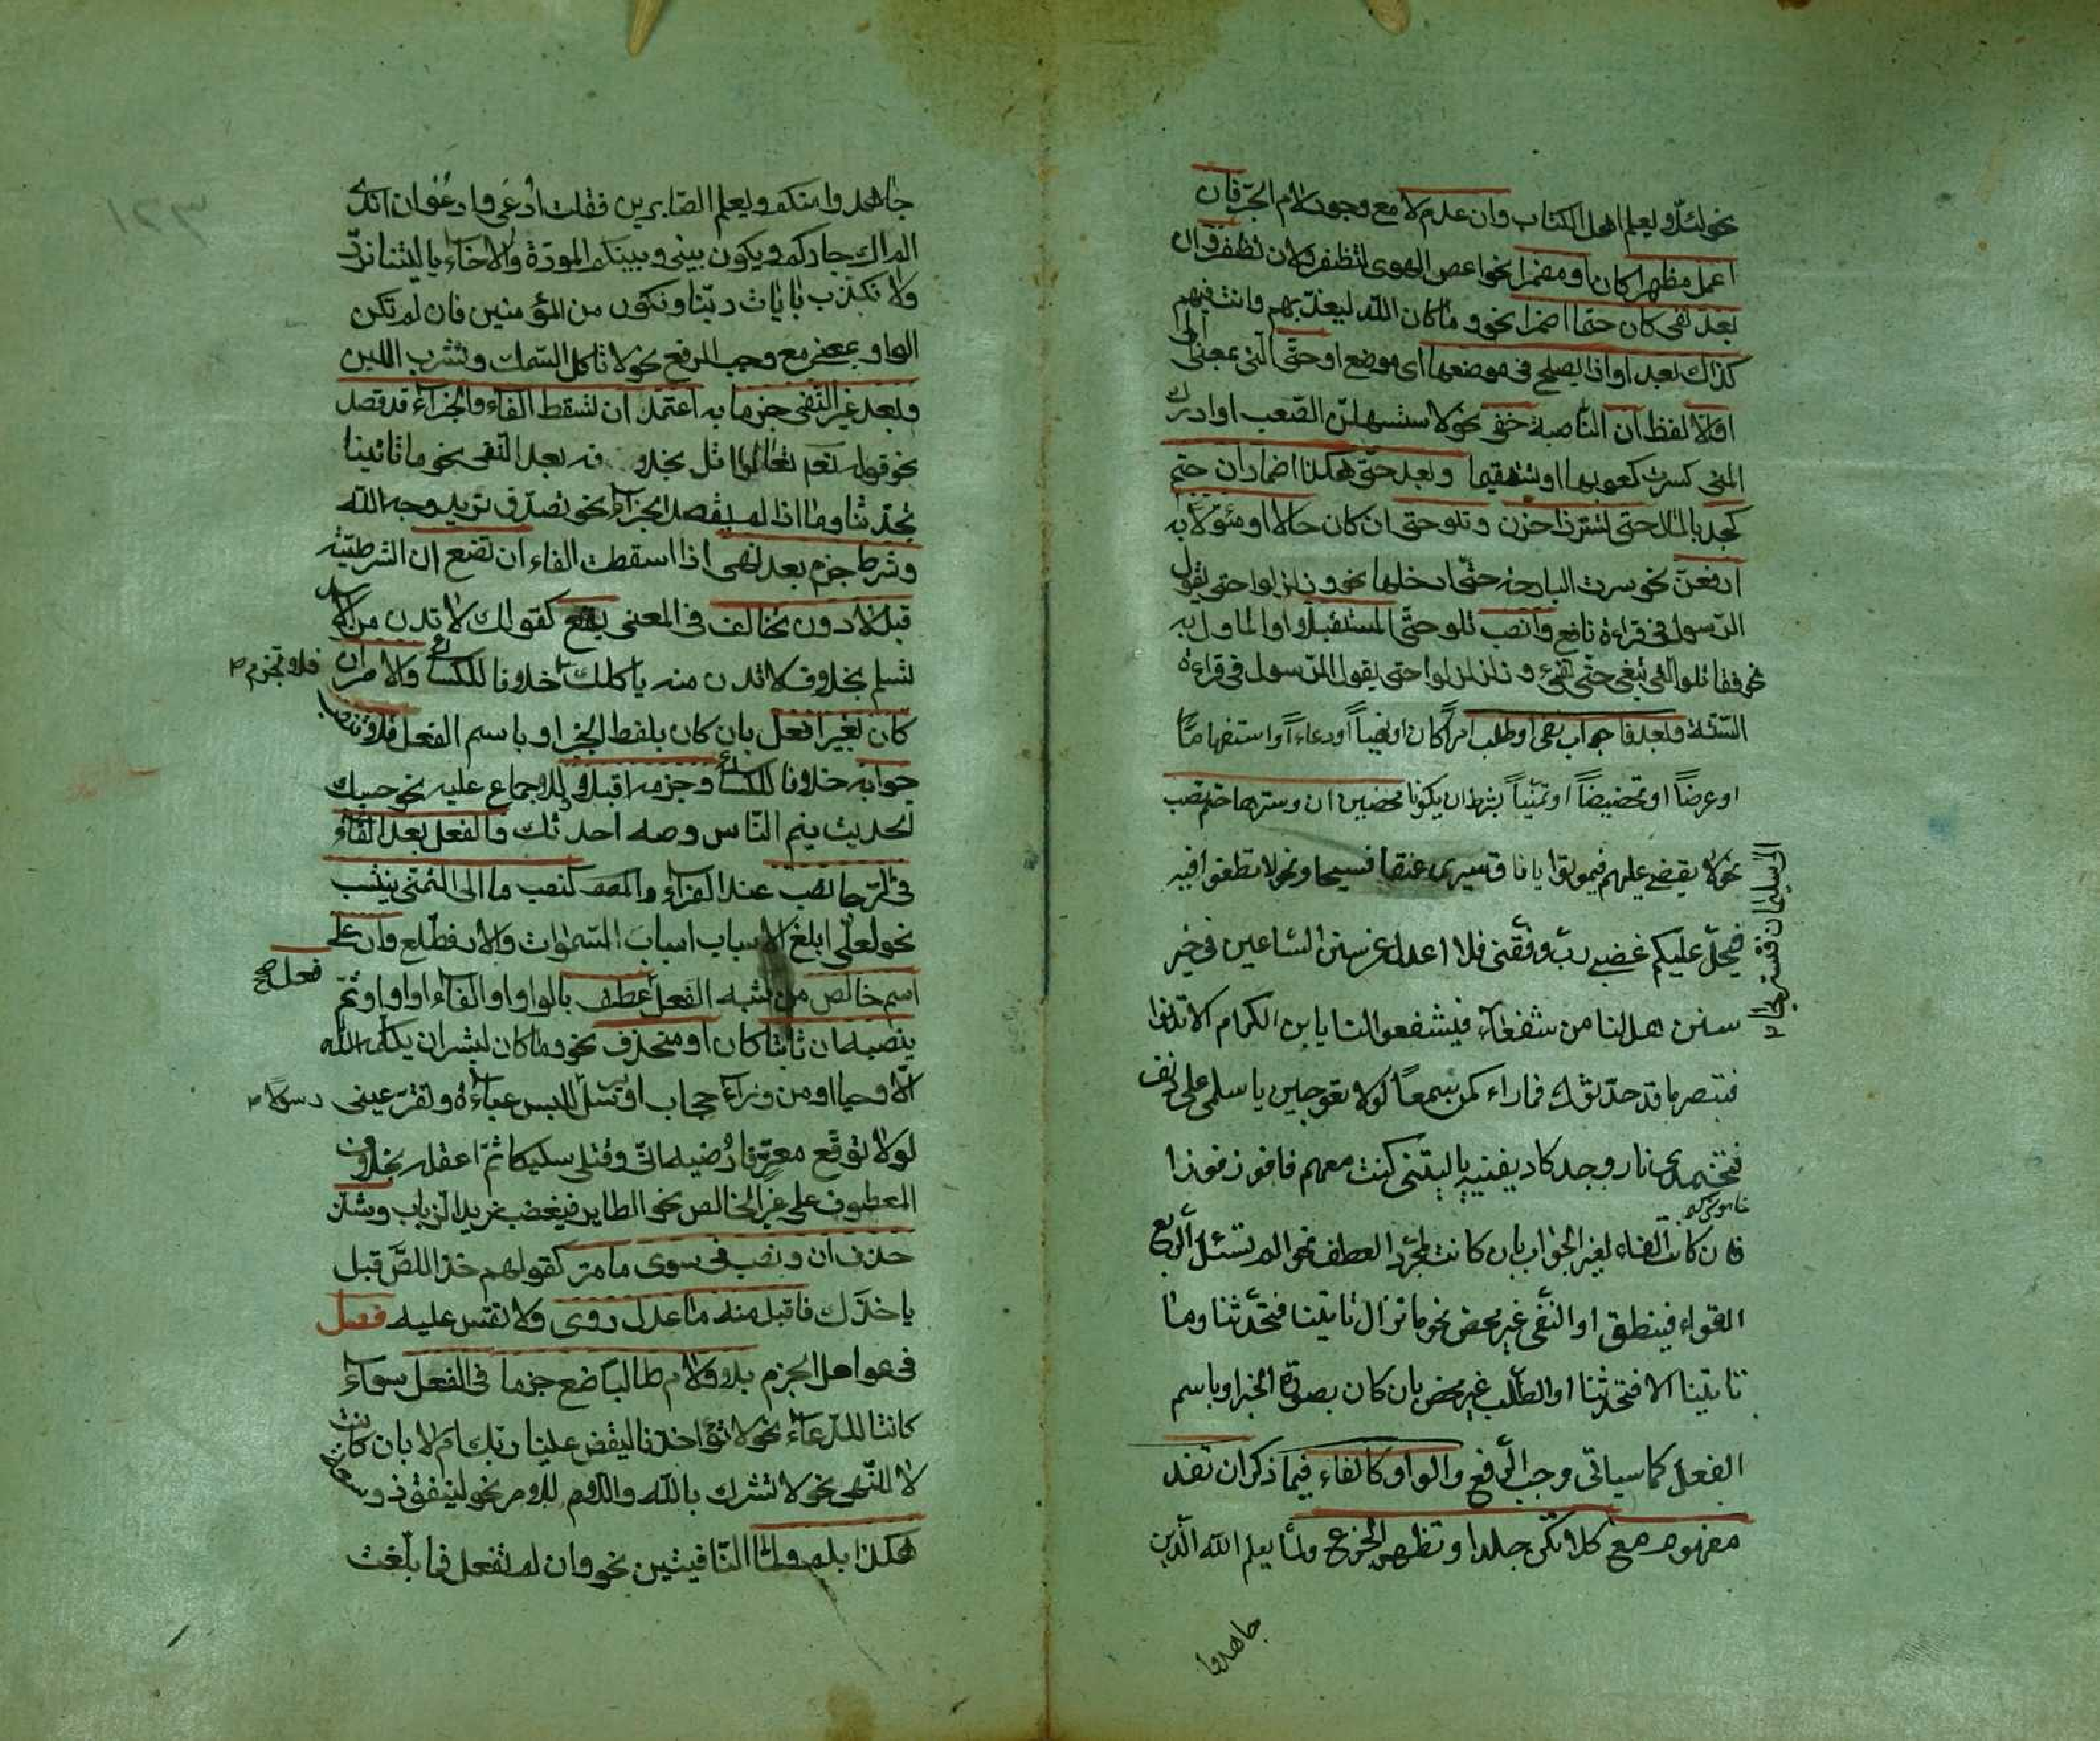 نحو لئلا يعلم اهل الكتاب وان عدم لا مع وجود لام الجر فان
اعمل مظهرا كان او مضمرا نحو اعص الهوى لتظفر ولان تظفر وان
بعد نفى كان حتما اضمرا نحو وما كان الله ليعذبهم وانت فيهم
كذاك بعد او اذا يصلح فى موضعها اى موضع او حتى التى بمعنى الى
او الا لفظ ان الناصبة خفى نحو لاستسهلن الصعب او ادرك
المنى كسرت كعوبها او تستقيما وبعد حتى هكذا اضمار ان حتم
كجد بالمال حتى تسر ذا حزن وتلو حتى ان كان حالا او مئولا به
ارفعن نحو سرت البارحة حتى ادخلها نحو وزلزلوا حتى يقول
الرسول فى قراءة نافع وانصب تلو حتى المستقبلا او الماول به
نحو فقاتلوا التى تبغى حتى تفىء وزلزلوا حتى يقول الرسول فى قراءة
الستة وبعد فا جواب نفى او طلب امرا كان او نهيا او دعاء او استفهاما
او عرضا او تحضيضا او تمنيا بشرط ان يكونا محضين ان وسترها حتم نصب
نحو لا يقضى عليهم فيموتوا يا ناق سيرى عنقا فسيحا ونحو لا تطغوا فيه
الى سليمان فنستريحا
فيحل عليكم غضبى رب وفقنى فلا اعدل عن سنن الساعين فى خير
سنن هل لنا من شفعاء فيشفعوا لنا يا بن الكرام الا تدنوا
فتبصر ما قد حدثوك فما راء كمن سمعا لولا تعوجين يا سلمى على دنف
فتخمدى نار وجد كاد يفنيه يا ليتنى كنت معهم فافوز فوزا
فان كانت الفاء لغير الجواب بان كانت لمجرد العطف نحو الم تسئل الربع
القواء فينطق او النفى غير محض نحو ما تزال تاتينا فتحدثنا وما
تاتينا الا فتحدثنا او الطلب غير محض بان كان بصورة الخبر او باسم
الفعل كما سياتى وجب الرفع والواو كالفاء فيما ذكر ان تفد
مفهوم مع كلا تكن جلدا وتظهر الجزع ولما يعلم الله الذين
جاهدوا
جاهدوا منكم ويعلم الصابرين فقلت ادعى وادعو ان اندى
الم اك جاركم ويكون بينى وبينكم المودة والاخاء يا ليتنا نرد
ولا نكذب بايات ربنا ونكون من المؤمنين فان لم تكن
الواو بمعنى مع وجب الرفع نحو لا تاكل السمك وتشرب اللبن
وبعد غير النفى جزما به اعتمد ان تسقط الفاء والجزاء قد قصد
نحو قوله تعم تعالوا اتل بخلافه بعد النفى نحو ما تاتينا
تحدثنا وما اذا لم يقصد الجزاء نحو تصدق تريد وجه الله
وشرط جزم بعد نهى اذا اسقطت الفاء ان تضع ان الشرطية
قبل لا دون تخالف فى المعنى يقع كقولك لا تدن من الاسد
تسلم بخلاف لا تدن منه ياكلك خلافا للكسائى والامر ان
فلا تجزم
كان بغير افعل بان كان بلفظ الخبر او باسم الفعل فلا تنصب
جوابه خلافا للكسائى وجزمه اقبلا للاجماع عليه نحو حسبك
الحديث ينم الناس وصه احدثك والفعل بعد الفاء
فى الرجا نصب عند الفراء والمصـ كنصب ما الى التمنى ينتسب
نحو لعلى ابلغ الاسباب اسباب السموات فاطلع وان على
اسم خالص من شبه الفعل عطف بالواو او الفاء او او او ثم
فعل صح
ينصبه ان ثابتا كان او منحذف نحو وما كان لبشر ان يكلمه الله
الا وحيا او من وراء حجاب او يرسل للبس عباءة وتقر عينى
رسولا
لولا توقع معتر فارضيه انى وقتلى سليكا ثم اعقله بخلاف
المعطوف على غير الخالص نحو الطاير فيغضب زيد الذباب وشذ
حذف ان ونصب فى سوى ما مر كقولهم خذ اللص قبل
ياخذك فاقبل منه ما عدل روى ولا تقس عليه فصل
فى عوامل الجزم بلا ولام طالبا ضع جزما فى الفعل سواء
كانتا للدعاء نحو لا تؤاخذنا ليقض علينا ربك ام لا بان كانت
لا للنهى نحو لا تشرك بالله واللام للامر نحو لينفق ذو سعة
هكذا بلم ولما النافيتين نحو وان لم تفعل فما بلغت